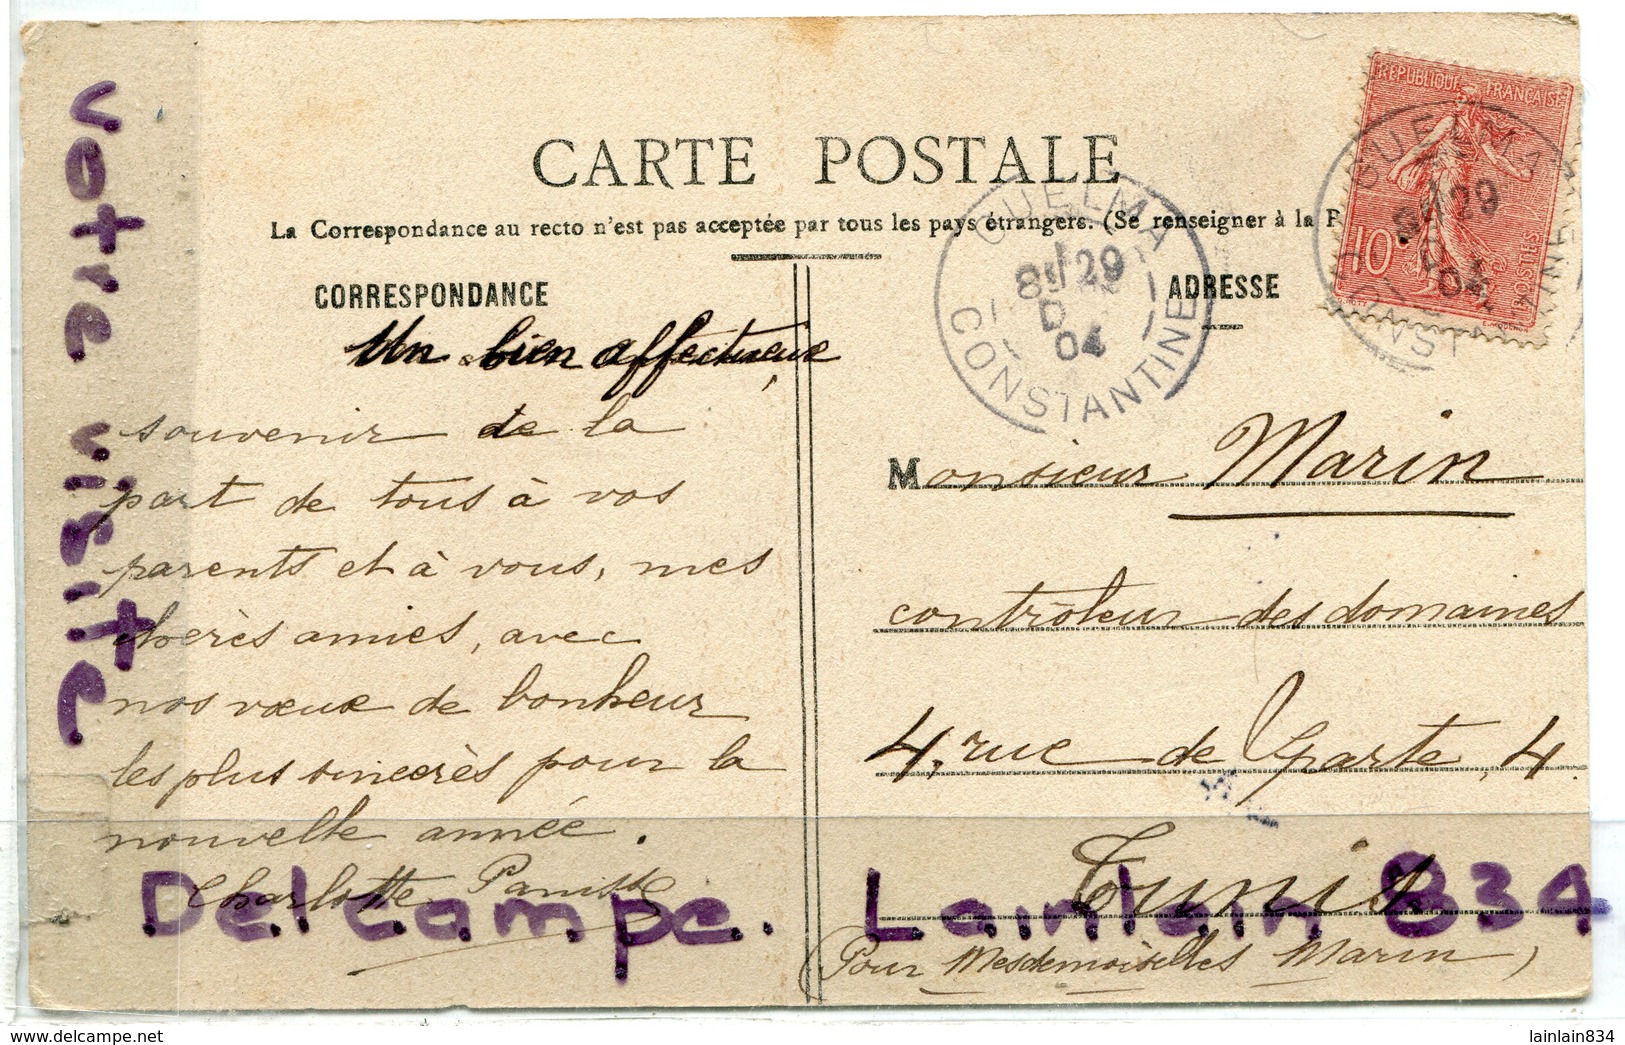 CARTE POSTALE
La Correspondance au recto n'est pas acceptée par tous les pays étrangers. (Se renseigner à la P
CORRESPONDANCE
ADRESSE
REPUBLIQUE FRANÇAISE
10c
POSTES
GUELMA
8E/29
D
04
CONSTANTINE
GUELMA
8E/29
04
CONST
Un bien affectueux
souvenir de la
part de tous à vos
parents et à vous, mes
chères amies, avec
nos vœux de bonheur
les plus sincères pour la
nouvelle année.
Charlotte
Monsieur Marin
contrôleur des domaines
4, rue de Sparte, 4
Tunis
(Pour Mesdemoiselles Marin)
votre visite
Delcampe. Lainlain 834
Delcampe.net
lainlain834